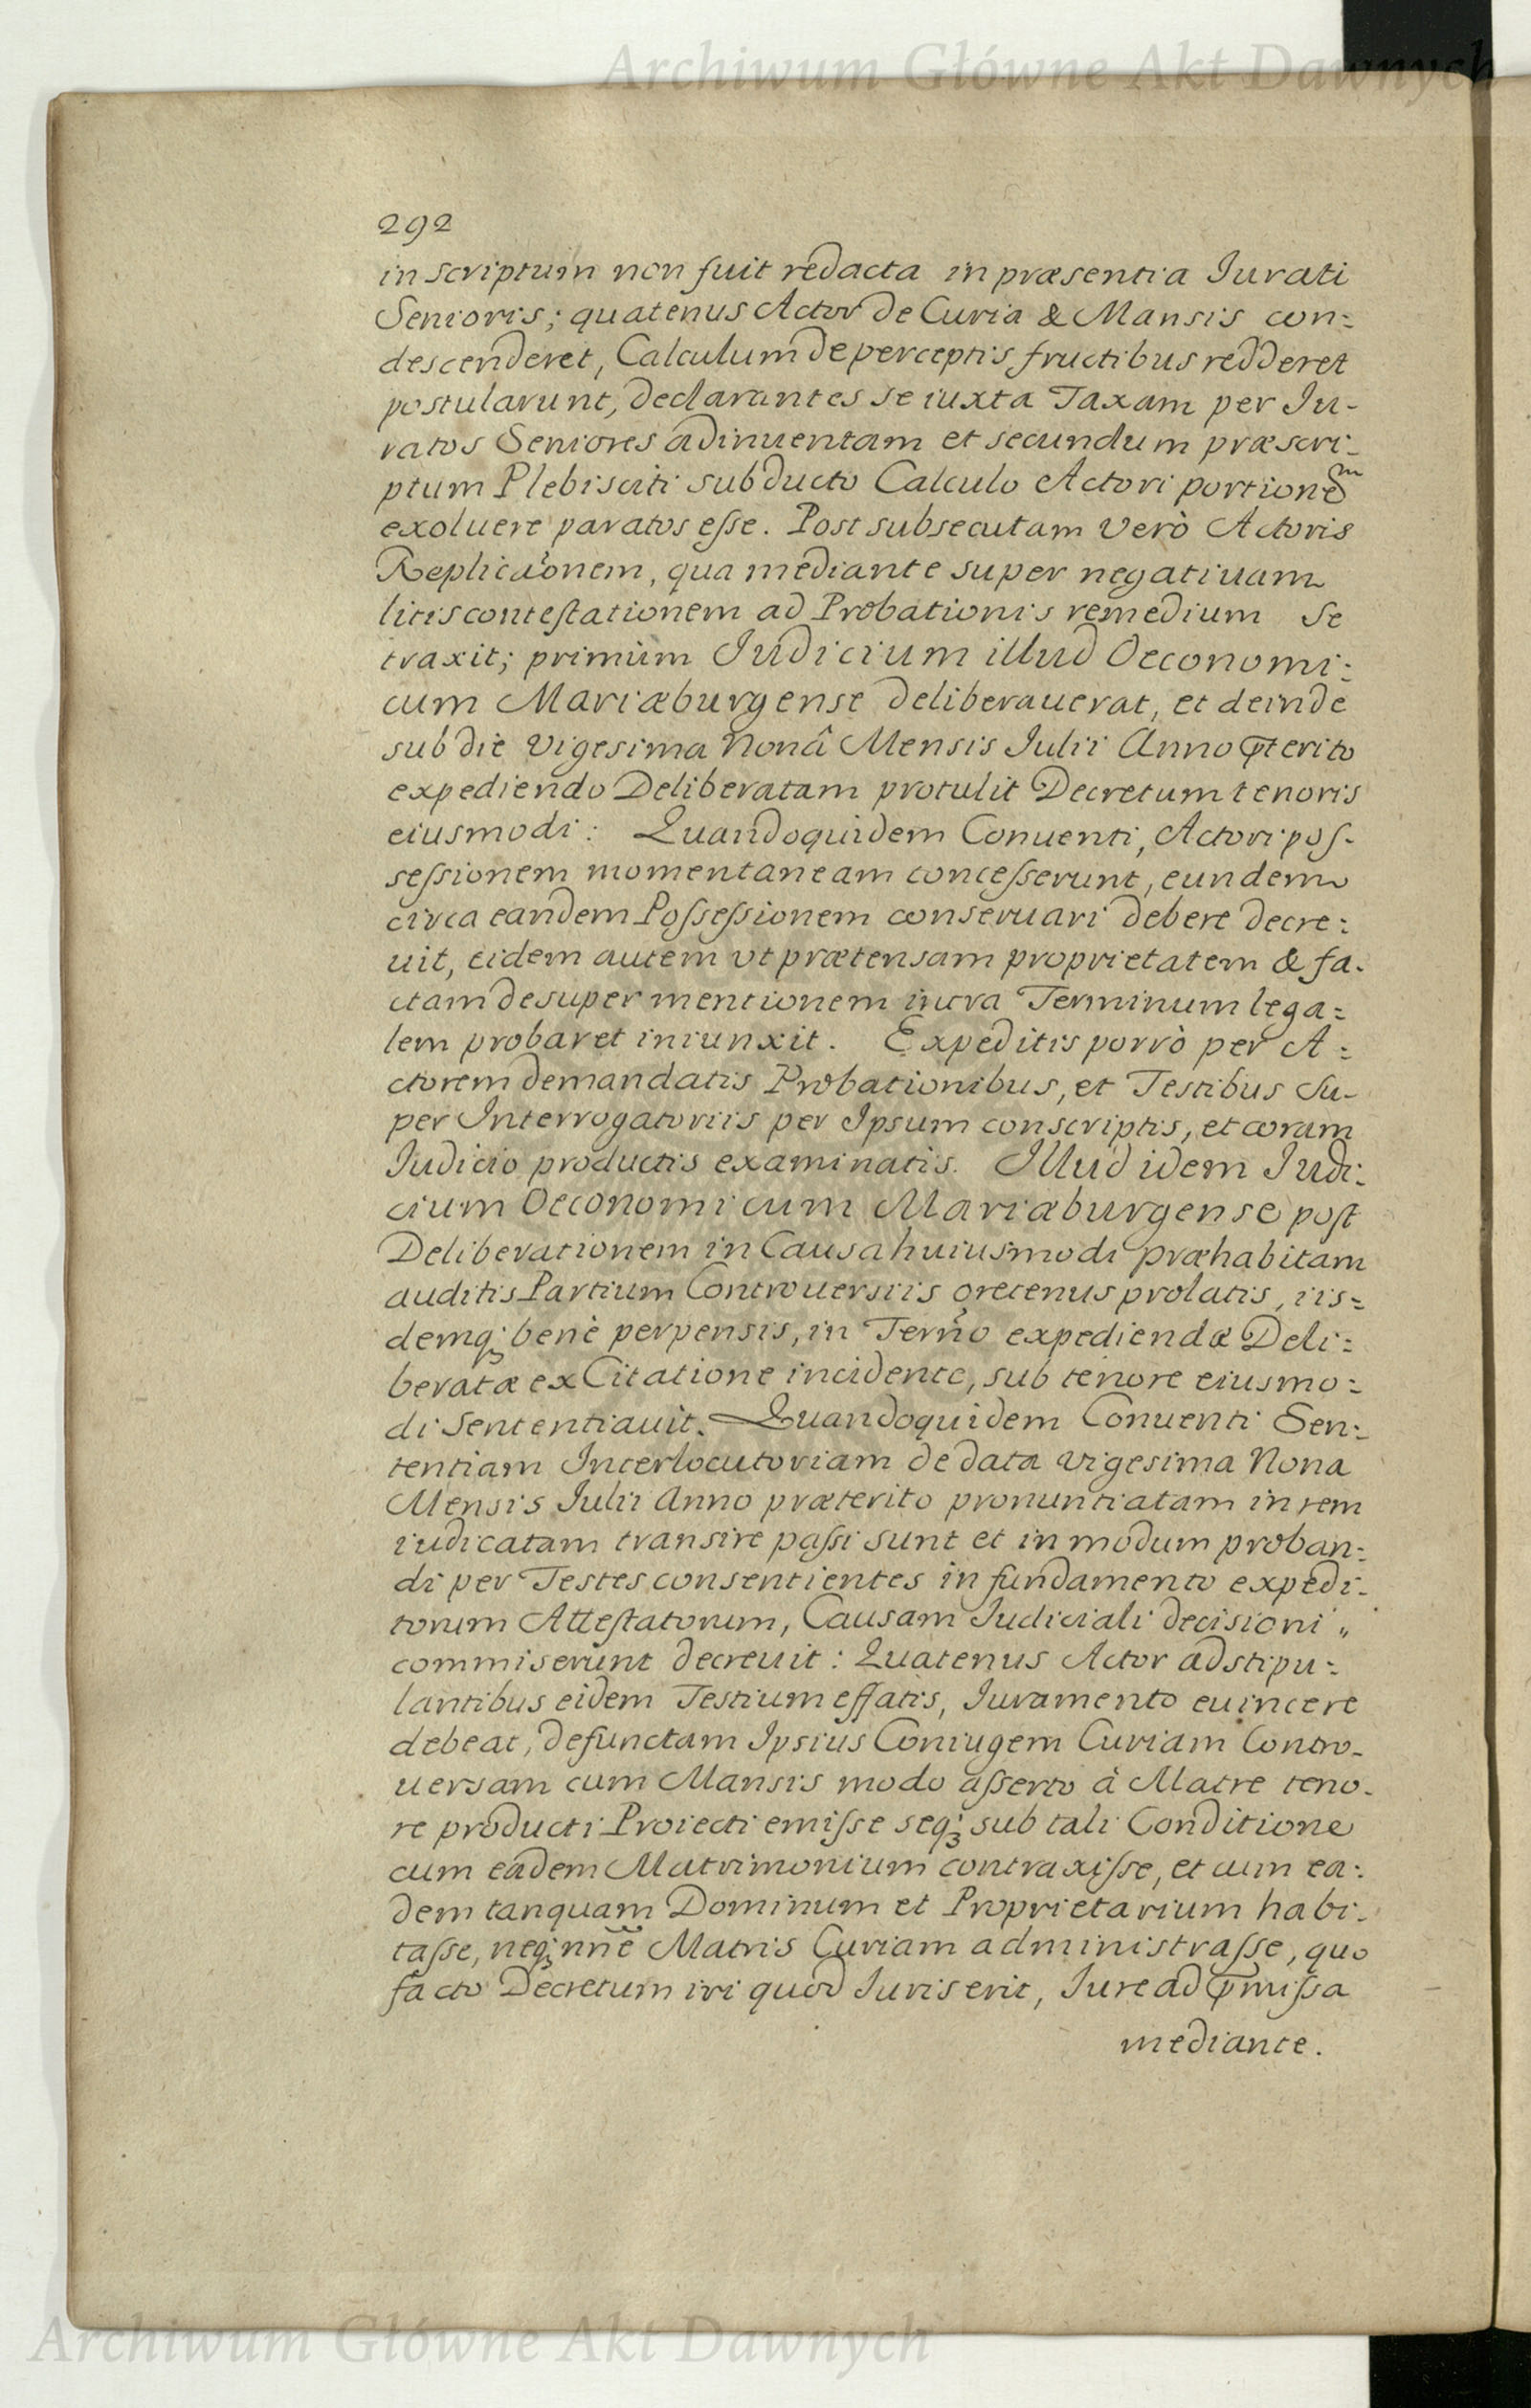 Archiwum Główne Akt Dawnych
292
in scriptum non fuit redacta in præsentia Iurati
Senioris; quatenus Actor de Curia & Mansis con:
descenderet, Calculum de perceptis fructibus redderet
postularunt, declarantes se iuxta Taxam per Iu-
ratos Seniores adinuentam et secundum præscri-
ptum Plebisciti subducto Calculo Actori portionẽ
exoluere paratos eſse. Post subsecutam verò Actoris
Replicãonem, qua mediante super negatiuam
litis conteſtationem ad Probationis remedium se
traxit; primùm Iudicium illud Oeconomi:
cum Mariæburgense deliberauerat, et deinde
sub die vigesima nonâ Mensis Iulii Anno p̃terito
expediendo Deliberatam protulit Decretum tenoris
eiusmodi: Quandoquidem Conuenti, Actori poſ-
seſsionem momentaneam conceſserunt, eundem
circa eandem Poſseſsionem conseruari debere decre:
uit, eidem autem vt prætensam proprietatem & fa-
ctam desuper mentionem intra Terminum lega:
lem probaret iniunxit. Expeditis porrò per A:
ctorem demandatis Probationibus, et Testibus su-
per Interrogatoriis per Ipsum conscriptis, et coram
Iudicio productis examinatis. Illud idem Iudi:
cium Oeconomicum Mariæburgense poſt
Deliberationem in Causa huiusmodi præhabitam
auditis Partium Controuersiis oretenus prolatis, iis:
demq; benè perpensis, in Term̃o expediendæ Deli:
beratæ ex Citatione incidente, sub tenore eiusmo:
di sententiauit. Quandoquidem Conuenti Sen:
tentiam Interlocutoriam de data vigesima Nona
Mensis Iulii Anno præterito pronuntiatam in rem
iudicatam transire paſsi sunt et in modum proban:
di per Testes consentientes in fundamento expedi-
torum Atteſtatorum, Causam Iudiciali decisioni „
commiserunt decreuit: Quatenus Actor adstipu:
lantibus eidem Testium effatis, Iuramento euincere
debeat, defunctam Ipsius Coniugem Curiam Contro-
uersam cum Mansis modo aſserto à Matre teno-
re producti Proiecti emiſse seq; sub tali Conditione
cum eadem Matrimonium contraxiſse, et cum ea:
dem tanquam Dominum et Proprietarium habi-
taſse, neq; nñe Matris Curiam administraſse, quo
facto Decretum iri quod Iuris erit, Iure ad p̃miſsa
mediante.
Archiwum Główne Akt Dawnych